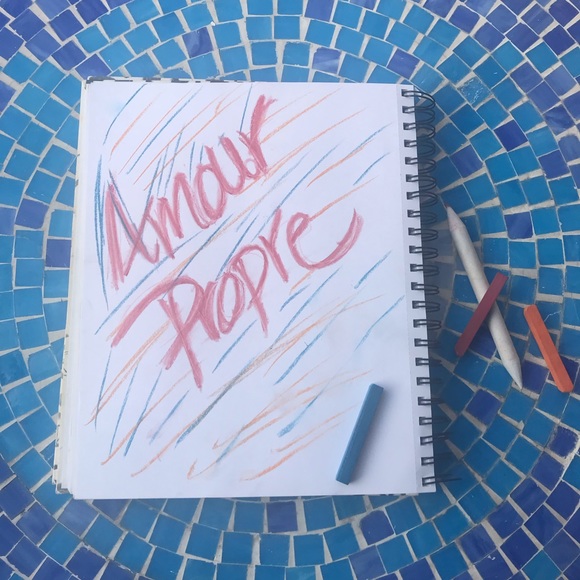 Amour
Propre